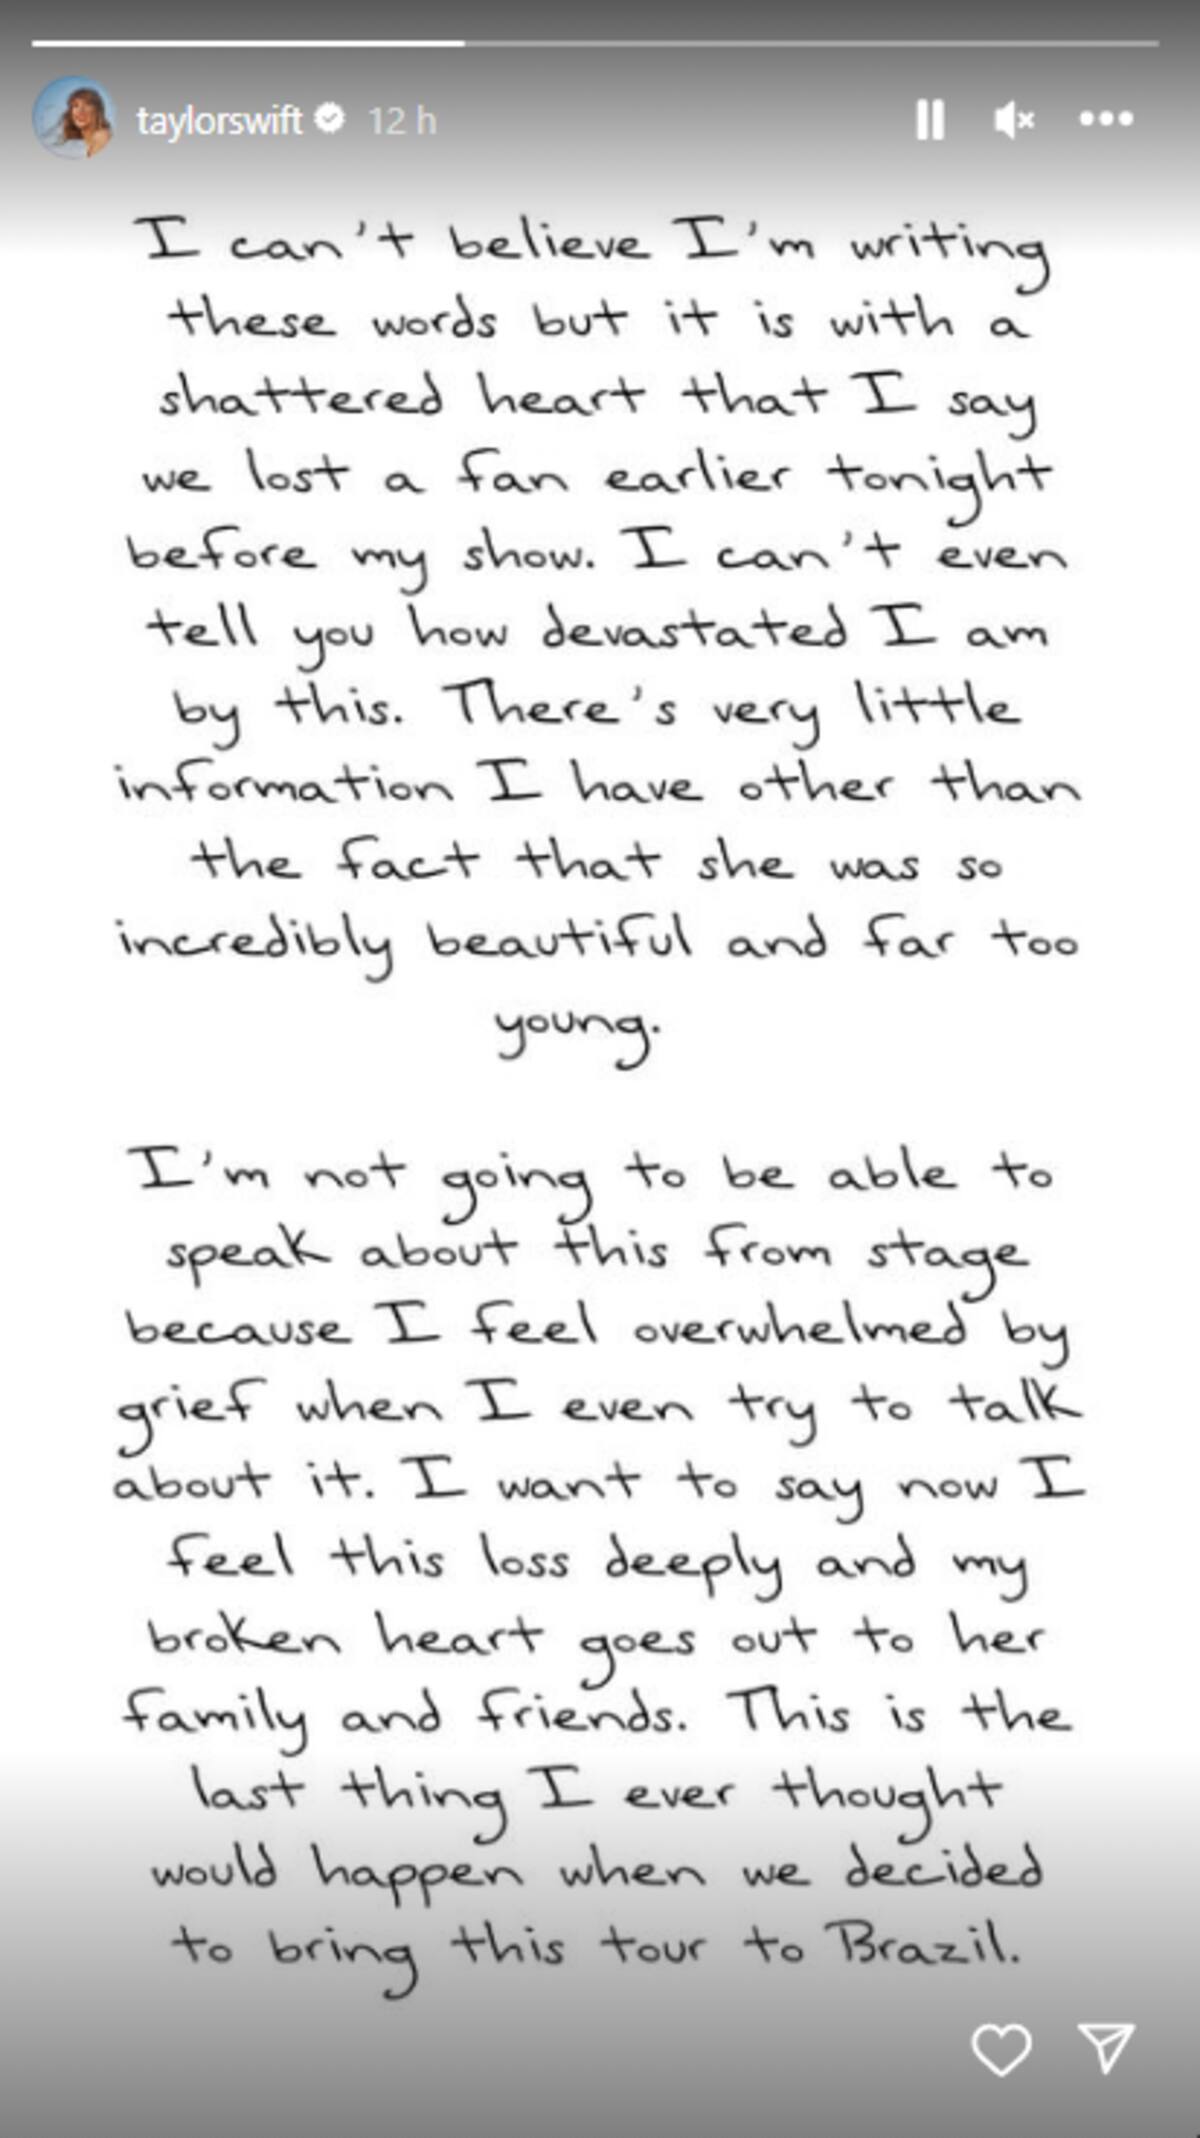 taylorswift 12 h
I can't believe I'm writing
these words but it is with a
shattered heart that I say
we lost a fan earlier tonight
before my show. I can't even
tell you how devastated I am
by this. There's very little
information I have other than
the fact that she was so
incredibly beautiful and far too
young.
I'm not going to be able to
speak about this from stage
because I feel overwhelmed by
grief when I even try to talk
about it. I want to say now I
feel this loss deeply and my
broken heart goes out to her
family and friends. This is the
last thing I ever thought
would happen when we decided
to bring this tour to Brazil.